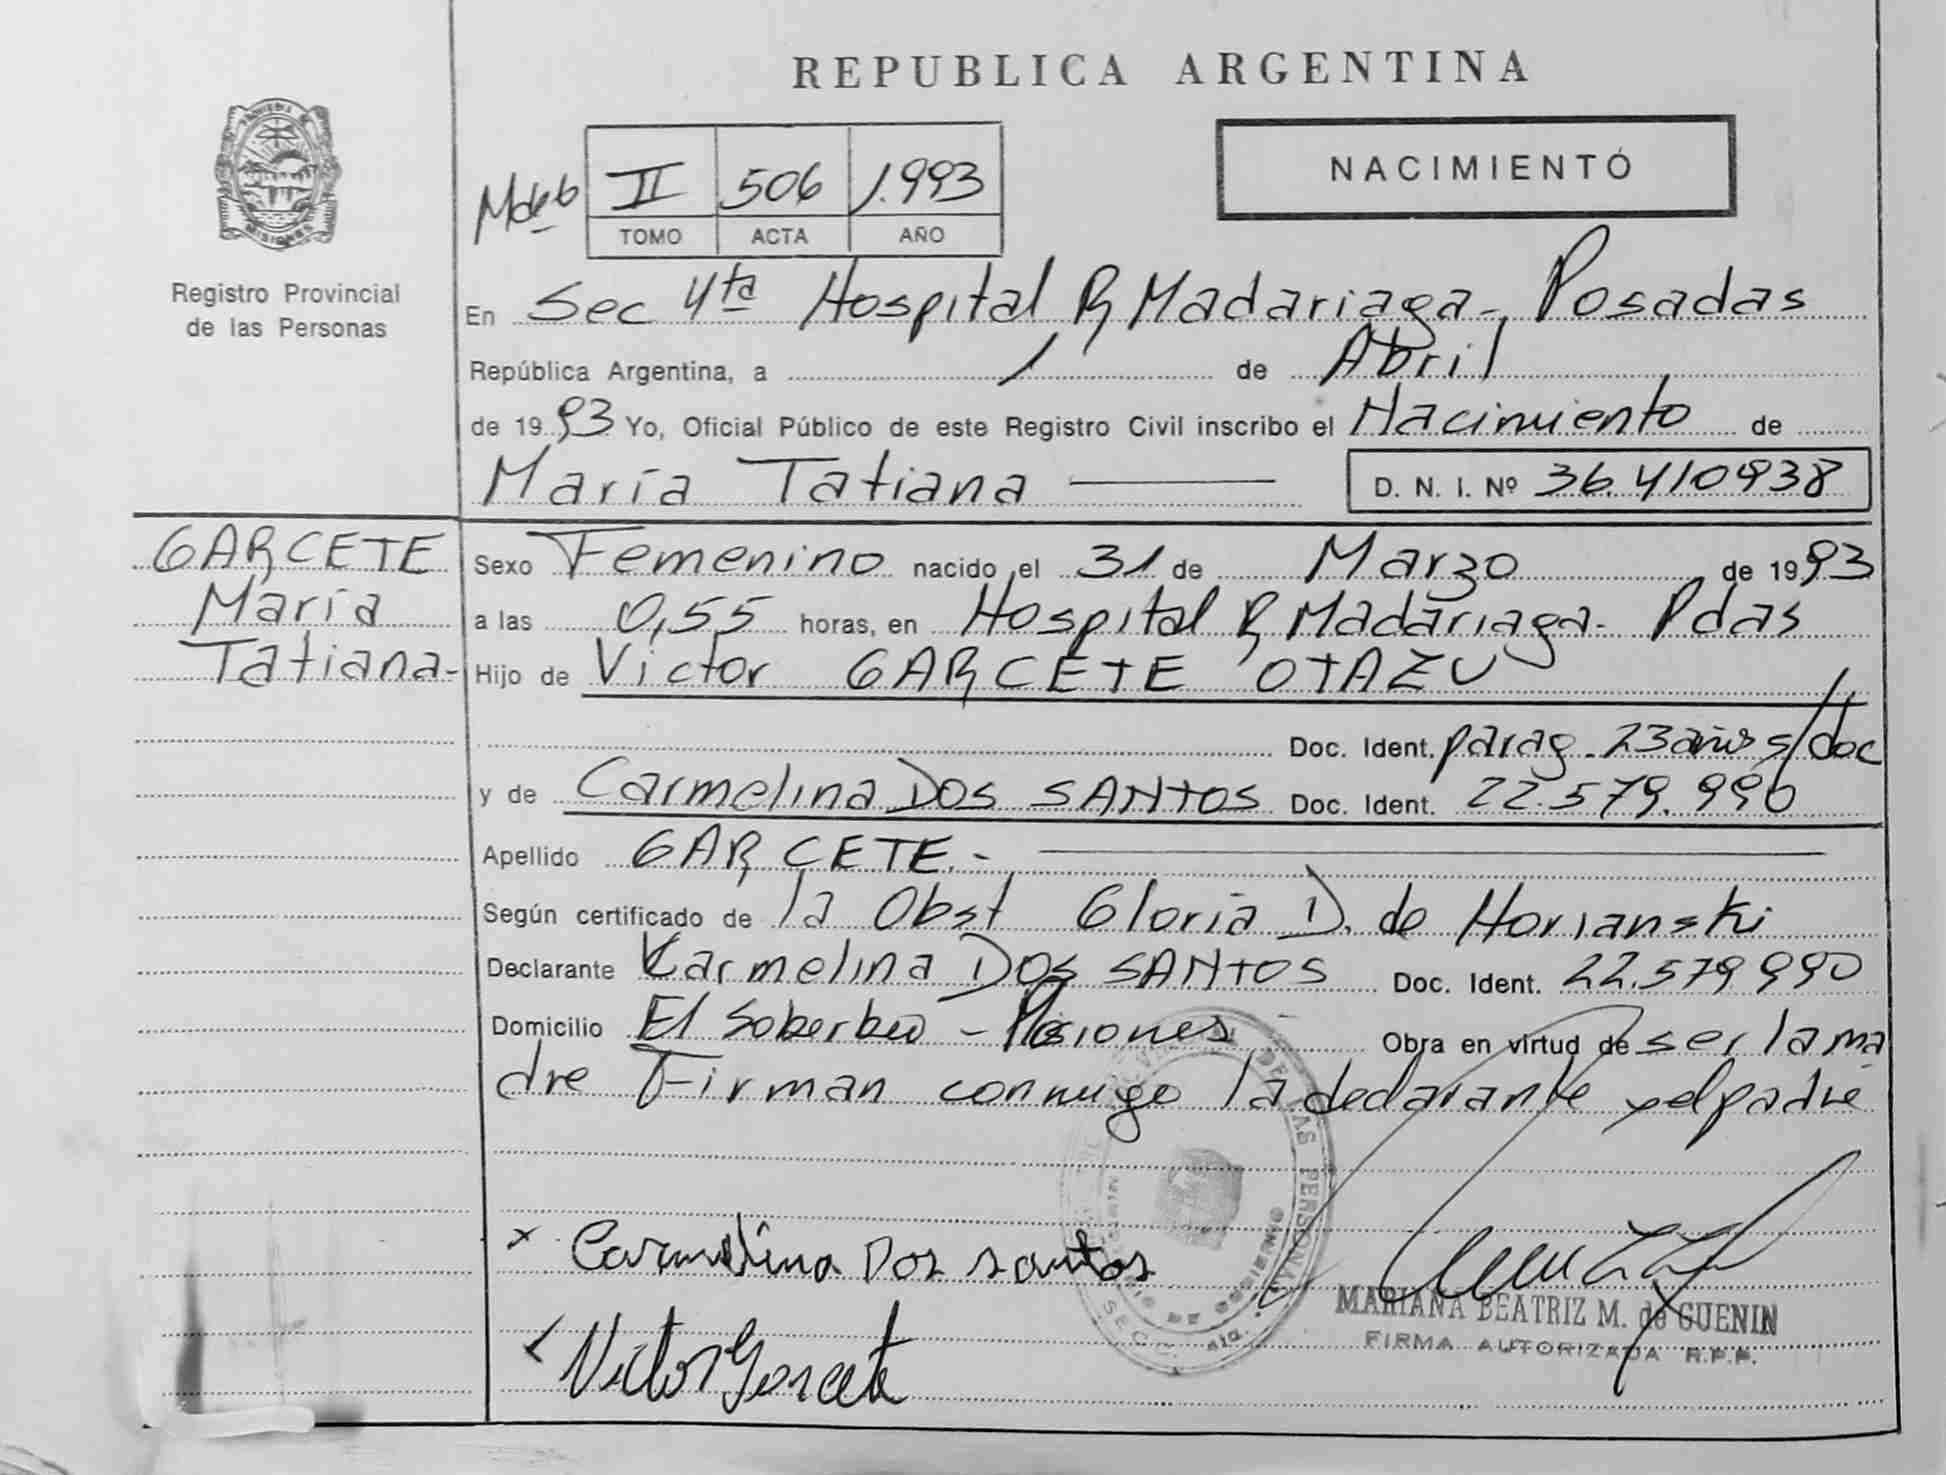 REPUBLICA ARGENTINA
NACIMIENTO
II 506 1.993
TOMO ACTA AÑO
Registro Provincial
de las Personas
MISIONES
En Sec 4ta Hospital R Madariaga - Posadas
República Argentina, a 1 de Abril
de 1993 Yo, Oficial Público de este Registro Civil inscribo el Nacimiento de
María Tatiana D. N. I. Nº 36.410938
GARCETE
María
Tatiana-
Sexo Femenino nacido el 31 de Marzo de 1993
a las 0,55 horas, en Hospital R Madariaga - Pdas
Hijo de Victor GARCETE OTAZU
Doc. Ident. parag - 23 años s/doc
y de Carmelina DOS SANTOS Doc. Ident. 22.579.990
Apellido GARCETE.-
Según certificado de la Obst Gloria D. de
Declarante Carmelina DOS SANTOS Doc. Ident. 22.579990
Domicilio El Soberbio - Misiones Obra en virtud de ser la ma
dre Firman conmigo la declarante y el padre
x Carmelina Dos santos
x Victor Garcete
MARIANA BEATRIZ M. de GUENIN
FIRMA AUTORIZADA R.P.P.
DE LAS PERSONAS
DE GOBIERNO